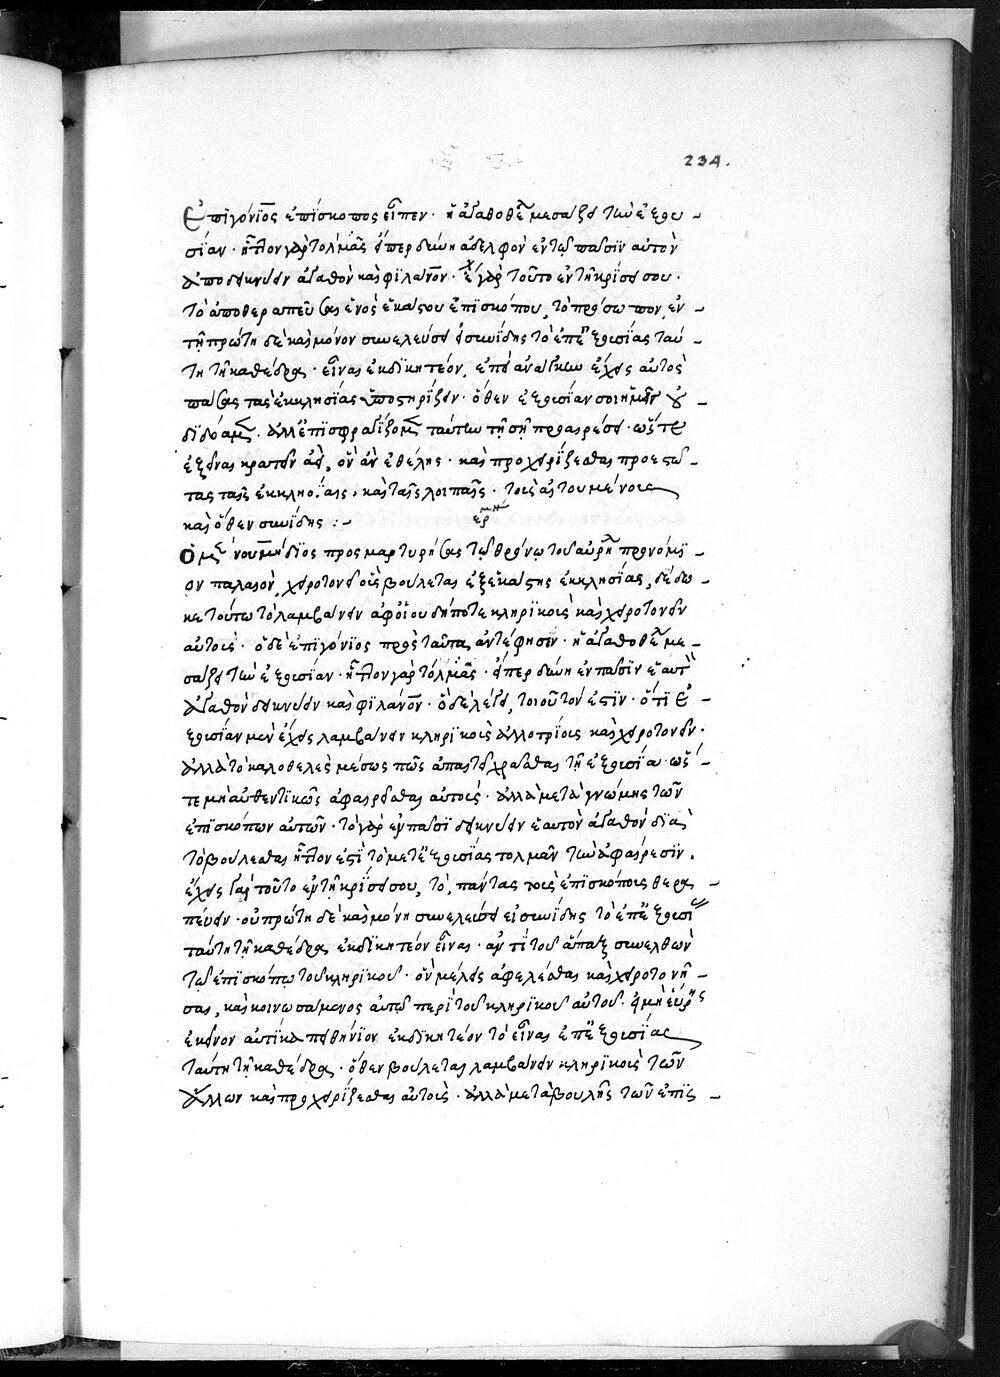 234.
Ἐπιγόνιος ἐπίσκοπος εἶπεν· ἡ ἀγαθοθελὴς μεσάζει τὴν ἐξου –
σίαν· ἧττον γὰρ τολμᾷς ὅπερ δεινὴ ἀδελφὸν ἐν τῷ πᾶσιν αὐτὸν
ἀποδεικνύειν ἀγαθὸν καὶ φιλάνον· ἔχει γὰρ τοῦτο ἐν τῇ κρίσει σου·
τὸ ἀποθεραπεῦσαι ἑνὸς ἑκάστου ἐπισκόπου, τὸ πρόσωπον, ἐν –
τῇ πρώτῃ δὲ καὶ μόνον συνελεύσει ὁ συνίδης τὸ ἐπ' ἐξουσίας ταύ –
τῃ τῇ καθέδρᾳ· εἶναι ἐκδικητέον, ἐπεὶ ἀνάγκην ἔχεις αὐτὸς
πάσας τὰς ἐκκλησίας ὑποστηρίζειν· ὅθεν ἐξουσίαν σοι ἡμεῖς οὐ –
δίδομεν· ἀλλ' ἐπισφραγίζομεν ταύτην τὴν σὴν προαίρεσιν· ὥστε
ἐξεῖναι κρατεῖν ἀεὶ, ὃν ἂν ἐθέλῃς· καὶ προχειρίζεσθαι προεστῶ –
τας ταῖς ἐκκλησίαις, καὶ ταῖς λοιπαῖς· τοῖς αἰτουμένοις
καὶ ὅθεν συνίδης :–
ἑρμη
Ὁ μὲν νουμήδιος προσμαρτυρήσας τῷ θρόνῳ τοῦ αὐρη προνόμι –
ον παλαιὸν, χειροτονεῖ οὓς βούλεται ἐξ ἑκάστης ἐκκλησίας, δέδω –
κε τούτῳ τὸ λαμβάνειν ἀφ' οἵου δήποτε κληρικοὺς καὶ χειροτονεῖν
αὐτούς· ὁ δὲ ἐπιγόνιος πρὸς ταῦτα, ἀντέφησεν· ἡ ἀγαθοθελὴς με –
σάζει τὴν ἐξουσίαν· ἧττον γὰρ τολμᾷς· ὅπερ δεινὴ ἐν πᾶσιν ἑαυτὸν
ἀγαθὸν δεικνύειν καὶ φιλάνον· ὃ δὲ λέγει, τοιοῦτόν ἐστιν· ὅτι ἐ –
ξουσίαν μὲν ἔχεις λαμβάνειν κληρικοὺς ἀλλοτρίους καὶ χειροτονεῖν·
ἀλλὰ τὸ καλοθελὲς μέσως πῶς ἀπαιτεῖ χρᾶσθαι τῇ ἐξουσίᾳ· ὥσ –
τε μὴ αὐθεντικῶς ἀφαιρεῖσθαι αὐτούς· ἀλλὰ μετὰ γνώμης τῶν
ἐπισκόπων αὐτῶν· τὸ γὰρ ἐν πᾶσι δεικνύειν ἑαυτὸν ἀγαθὸν διὰ
τὸ βούλεσθαι ἧττον ἐστὶ τὸ μετ' ἐξουσίας τολμᾶν τὴν ἀφαίρεσιν.
ἔχεις γὰρ τοῦτο ἐν τῇ κρίσει σου, τὸ, πάντας τοὺς ἐπισκόπους θερα –
πεύειν· οὐ πρώτῃ δὲ καὶ μόνῃ συνελεύσει εἰ συνίδης τὸ ἐπ' ἐξουσί
ταύτῃ τῇ καθέδρᾳ ἐκδικητέον εἶναι· ἀντὶ τοῦ ἅπαξ συνελθὼν
τῷ ἐπισκόπῳ τοῦ κληρικοῦ· ὃν μέλεις ἀφελέσθαι καὶ χειροτονῆ –
σαι, καὶ κοινωσάμενος αὐτῷ περὶ τοῦ κληρικοῦ αὐτοῦ· εἰ μὴ εὕρῃς
ἐκεῖνον αὐτίκα πειθήνιον ἐκδικητέον τὸ εἶναι ἐπ' ἐξουσίας
ταύτῃ τῇ καθέδρᾳ· ὅθεν βούλεται λαμβάνειν κληρικοὺς τῶν
ἄλλων καὶ προχειρίζεσθαι αὐτούς· ἀλλὰ μετὰ βουλῆς τῶν ἐπις –